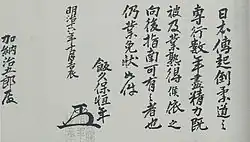 日本傳起倒柔道之
専行数年盡精力既
被及業熟得候依之
向後指南可有之者也
仍業免状如件
飯久保恒年
明治十六年十月吉辰
加納治五郎殿